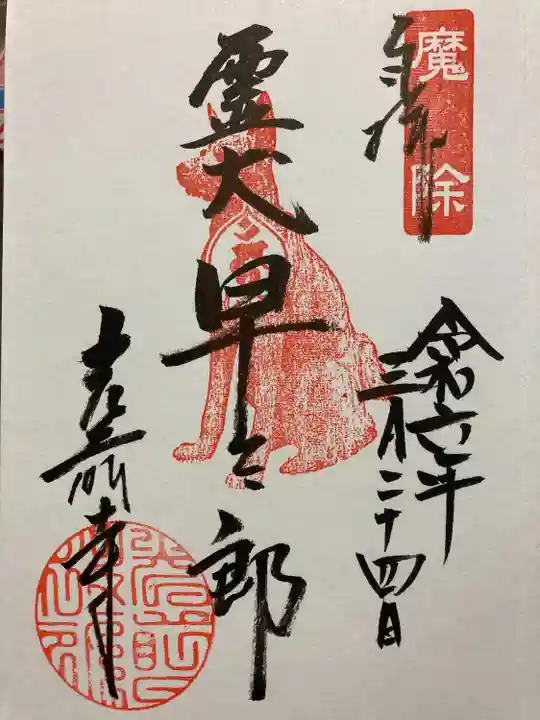 奉拝
魔除
令和六年
三月二十四日
霊犬
早太郎
光前寺